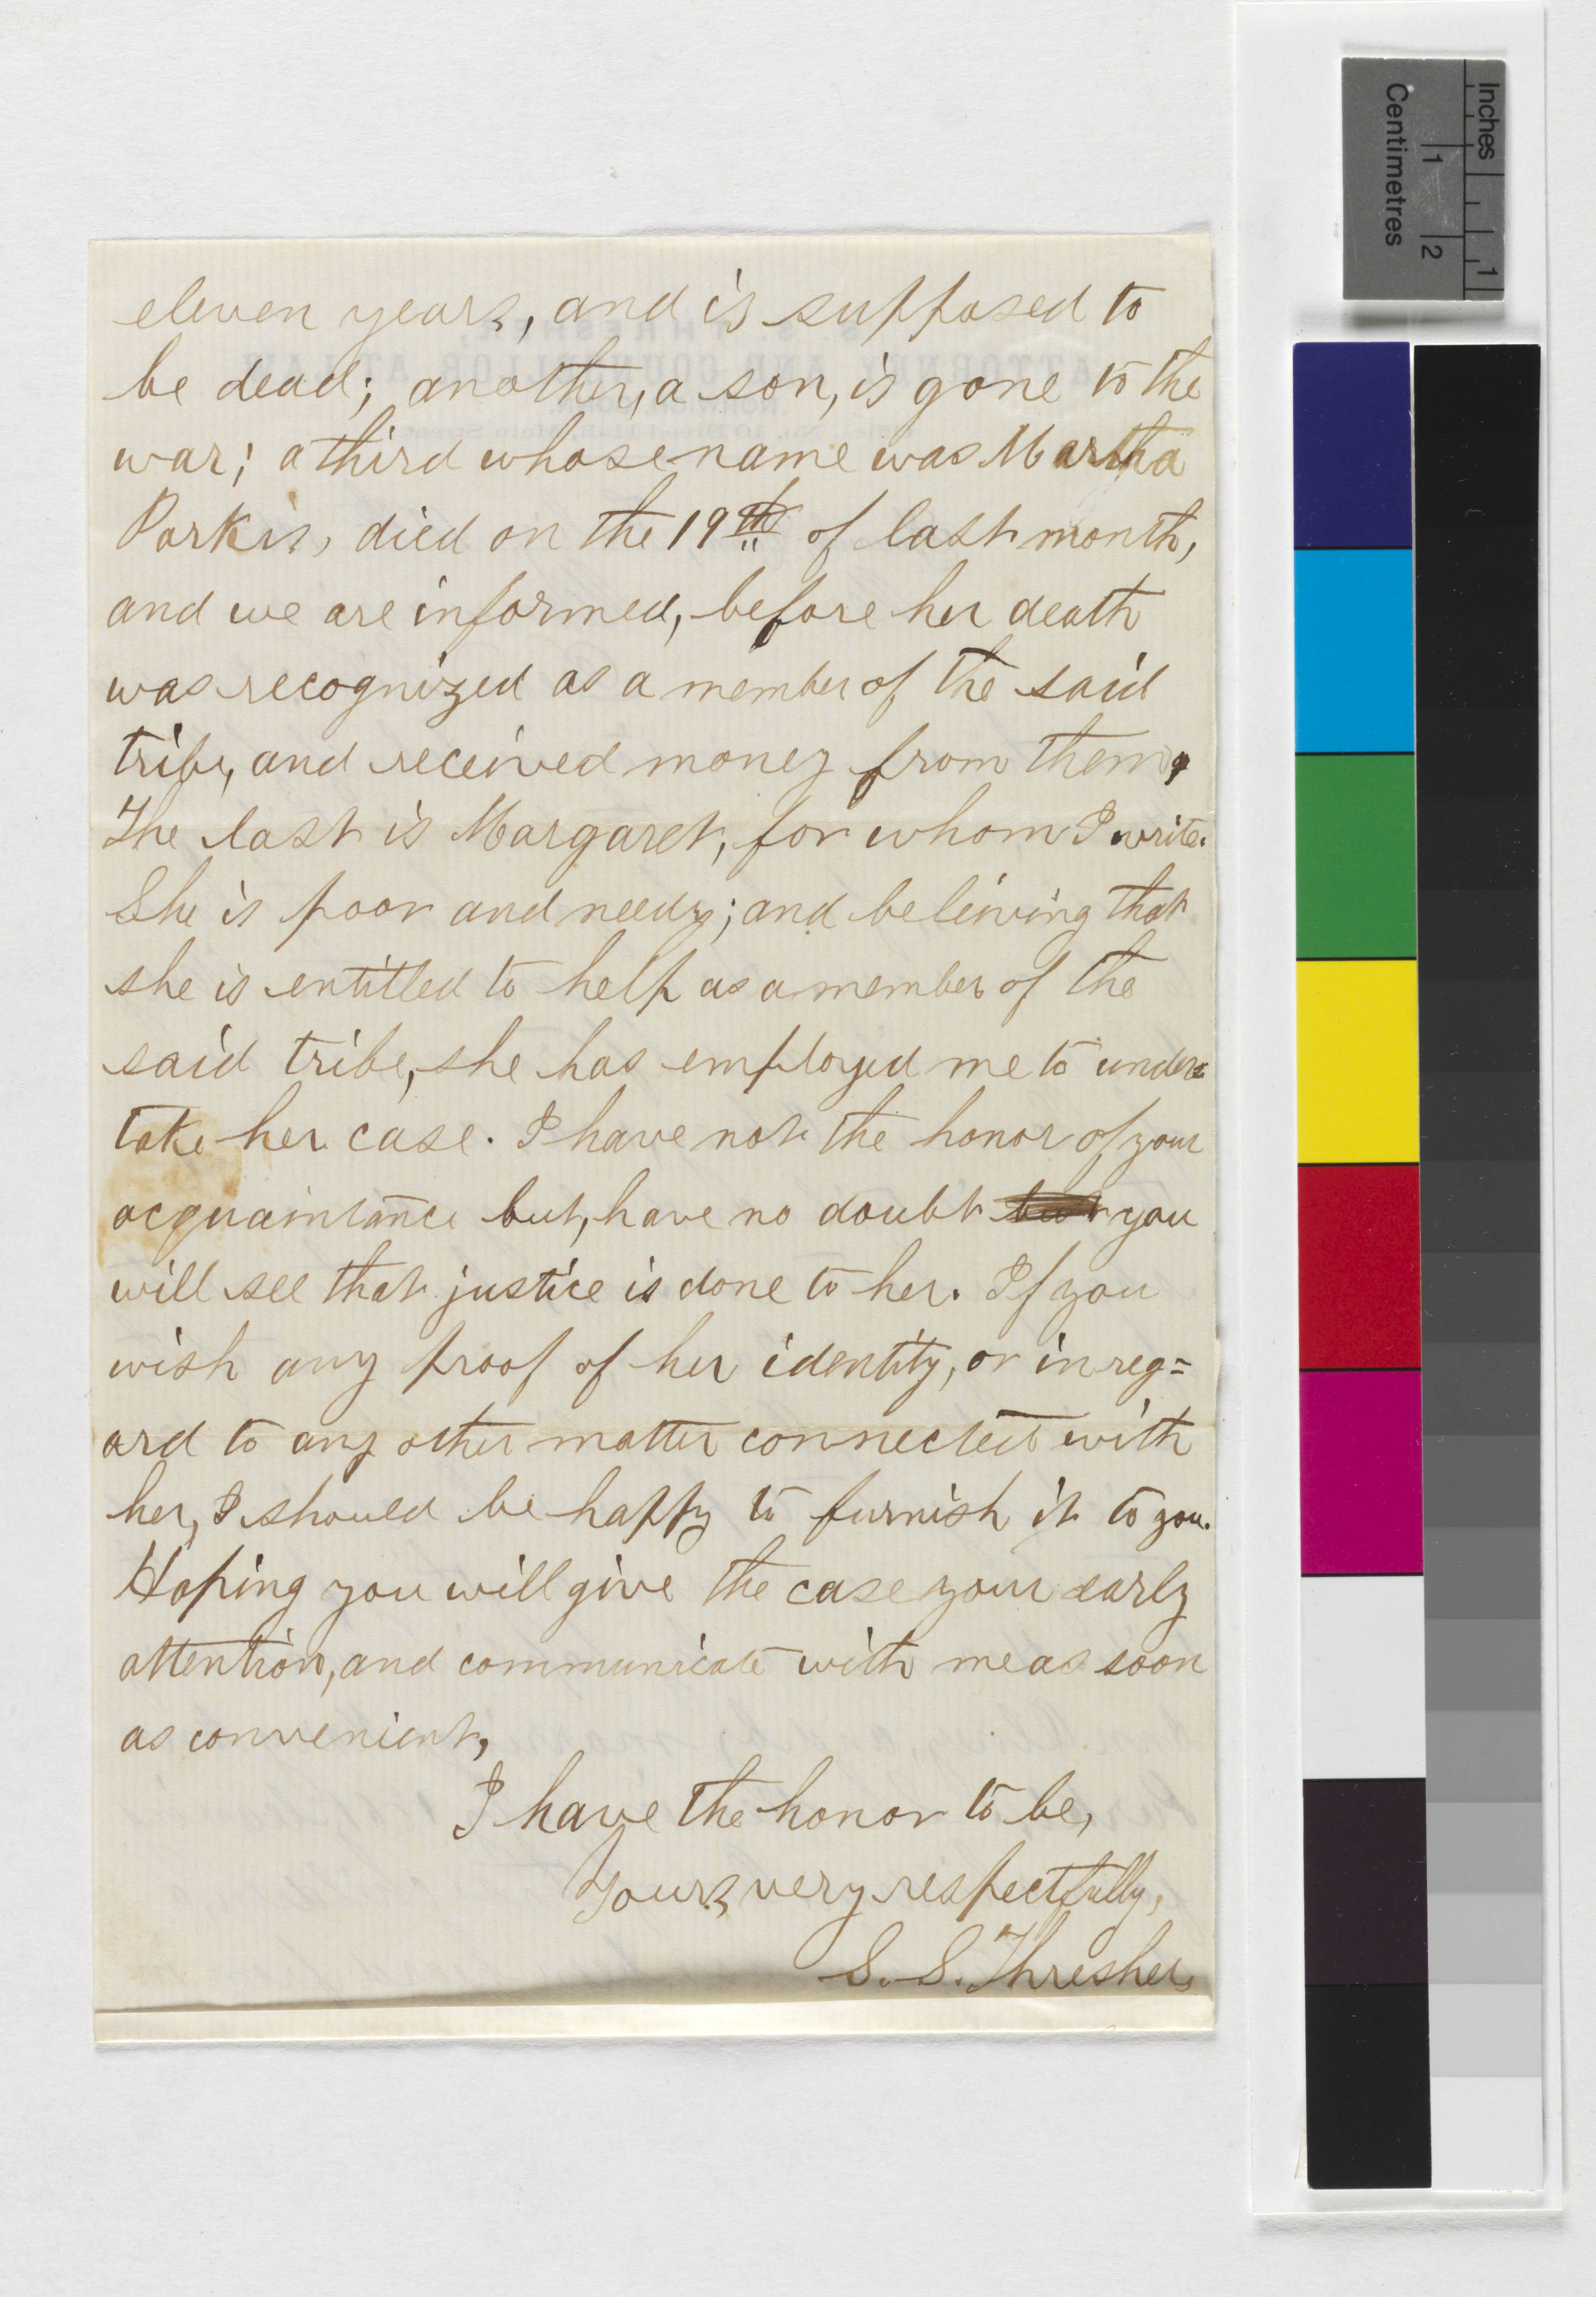 eleven years, and is supposed to
be dead; another, a son, is gone to the
war; a third whose name was Martha
Parkis, died on the 19th of last month,
and we are informed, before her death
was recognized as a member of the said
tribe, and received money from them,
The last is Margaret, for whom I write.
She is poor and needy; and believing that
she is entitled to help as a member of the
said tribe, she has employed me to under=
take her case. I have not the honor of your
acquaintance but, have no doubt but you
will see that justice is done to her. If you
wish any proof of her identity, or in reg=
ard to any other matter connected with
her, I should be happy to furnish it to you.
Hoping you will give the case your early
attention, and communicate with me as soon
as convenient,
I have the honor to be,
Yours, very respectfully,
S. S. Thresher,
Inches
1
Centimetres
1
2